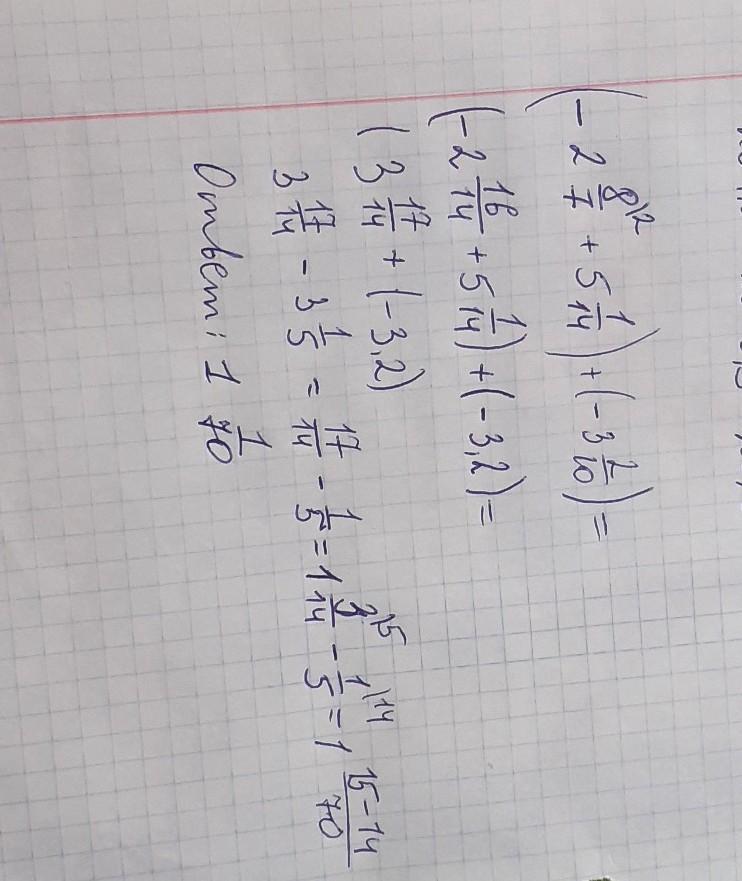 (- 2 8/7 + 5 1/14) + (- 3 2/10) =
(- 2 16/14 + 5 1/14) + (- 3,2) =
(3 17/14 + (- 3,2)
3 17/14 - 3 1/5 = 17/14 - 1/5 = 1 3/14 - 1/5 = 1 15-14/70
Ответ: 1 1/70